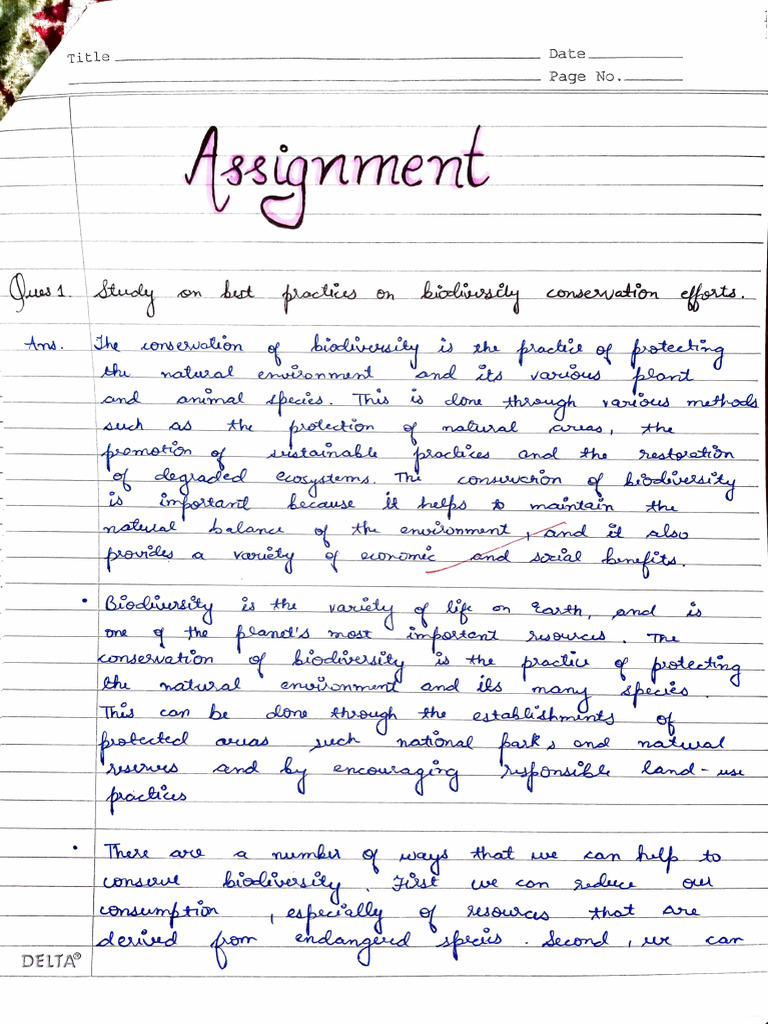 Title Date
Page No.
Assignment
Ques 1. Study on best practices on biodiversity conservation efforts.
Ans. The conservation of biodiversity is the practice of protecting
the natural environment and its various plant
and animal species. This is done through various methods
such as the protection of natural areas, the
promotion of sustainable practices and the restoration
of degraded ecosystems. The conservation of biodiversity
is important because it helps to maintain the
natural balance of the environment, and it also
provides a variety of economic and social benefits.
• Biodiversity is the variety of life on Earth, and is
one of the planet's most important resources. The
conservation of biodiversity is the practice of protecting
the natural environment and its many species.
This can be done through the establishments of
protected areas such national parks and natural
reserves and by encouraging responsible land-use
practices
• There are a number of ways that we can help to
conserve biodiversity. First we can reduce our
consumption, especially of resources that are
derived from endangered species. Second, we can
DELTA®